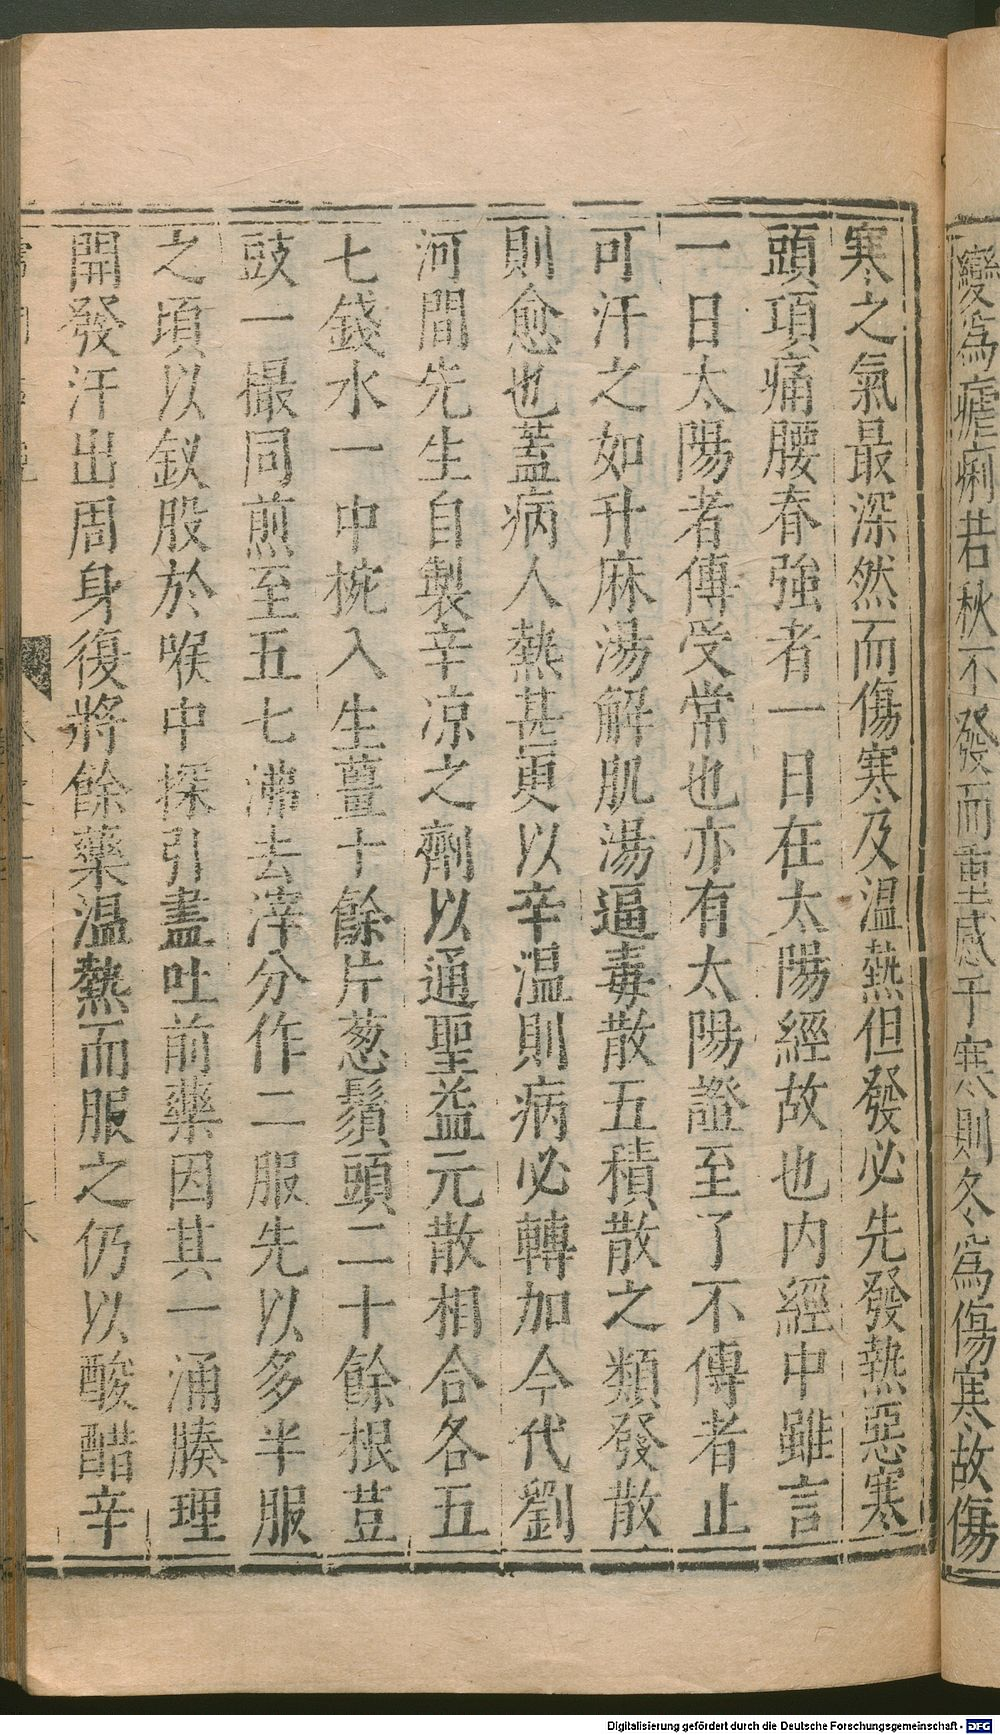 變爲瘧痢若秋不發而重感于寒則冬爲傷寒故傷
寒之氣最深然而傷寒及温熱但發必先發熱惡寒
頭項痛腰脊強者一日在太陽經故也内經中雖言
一日太陽者傳受常也亦有太陽證至了不傳者止
可汗之如升麻湯解肌湯逼毒散五積散之類發散
則愈也蓋病人熱甚更以辛温則病必轉加今代劉
河間先生自製辛凉之劑以通聖益元散相合各五
七錢水一中椀入生薑十餘片葱鬚頭二十餘根荳
豉一撮同煎至五七沸去滓分作二服先以多半服
之頃以釵股於喉中探引盡吐前藥因其一涌腠理
開發汗出周身復將餘藥温熱而服之仍以酸醋辛
Digitalisierung gefördert durch die Deutsche Forschungsgemeinschaft - DFG